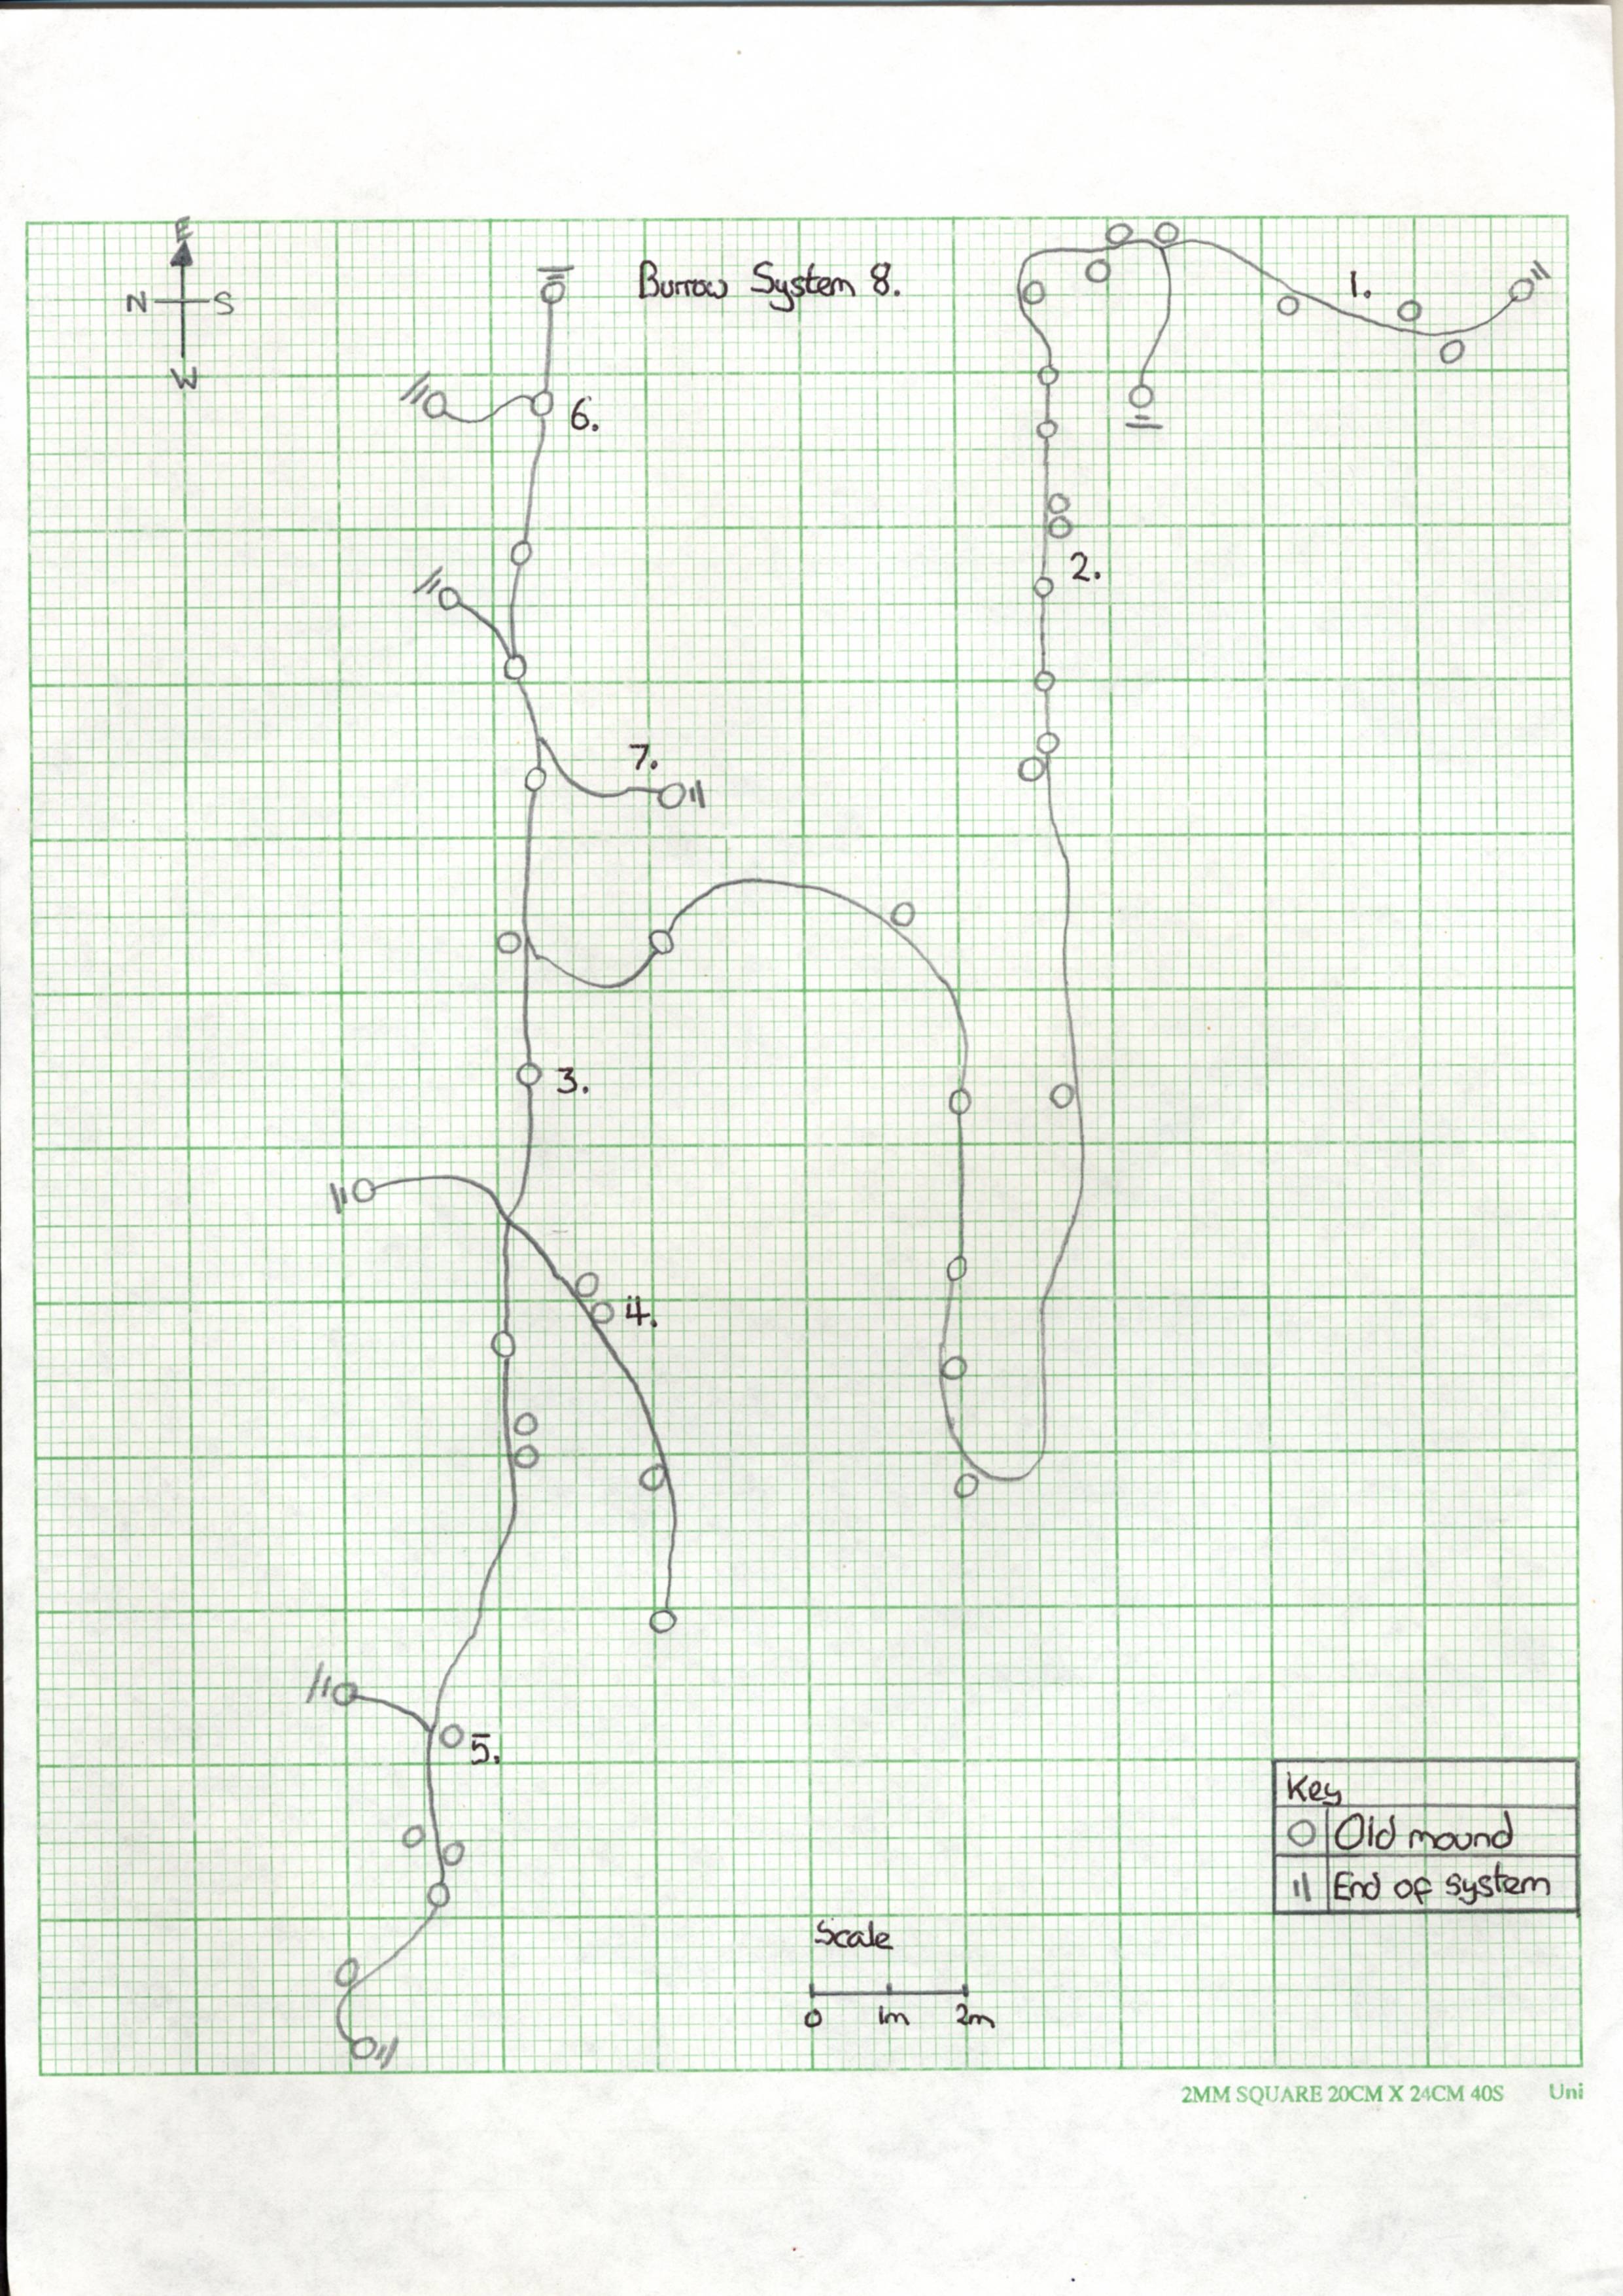 E
N S
W
Burrow System 8.
1.
6.
2.
7.
3.
4.
5.
Key
Old mound
End of system
Scale
0 1m 2m
2MM SQUARE 20CM X 24CM 40S Uni